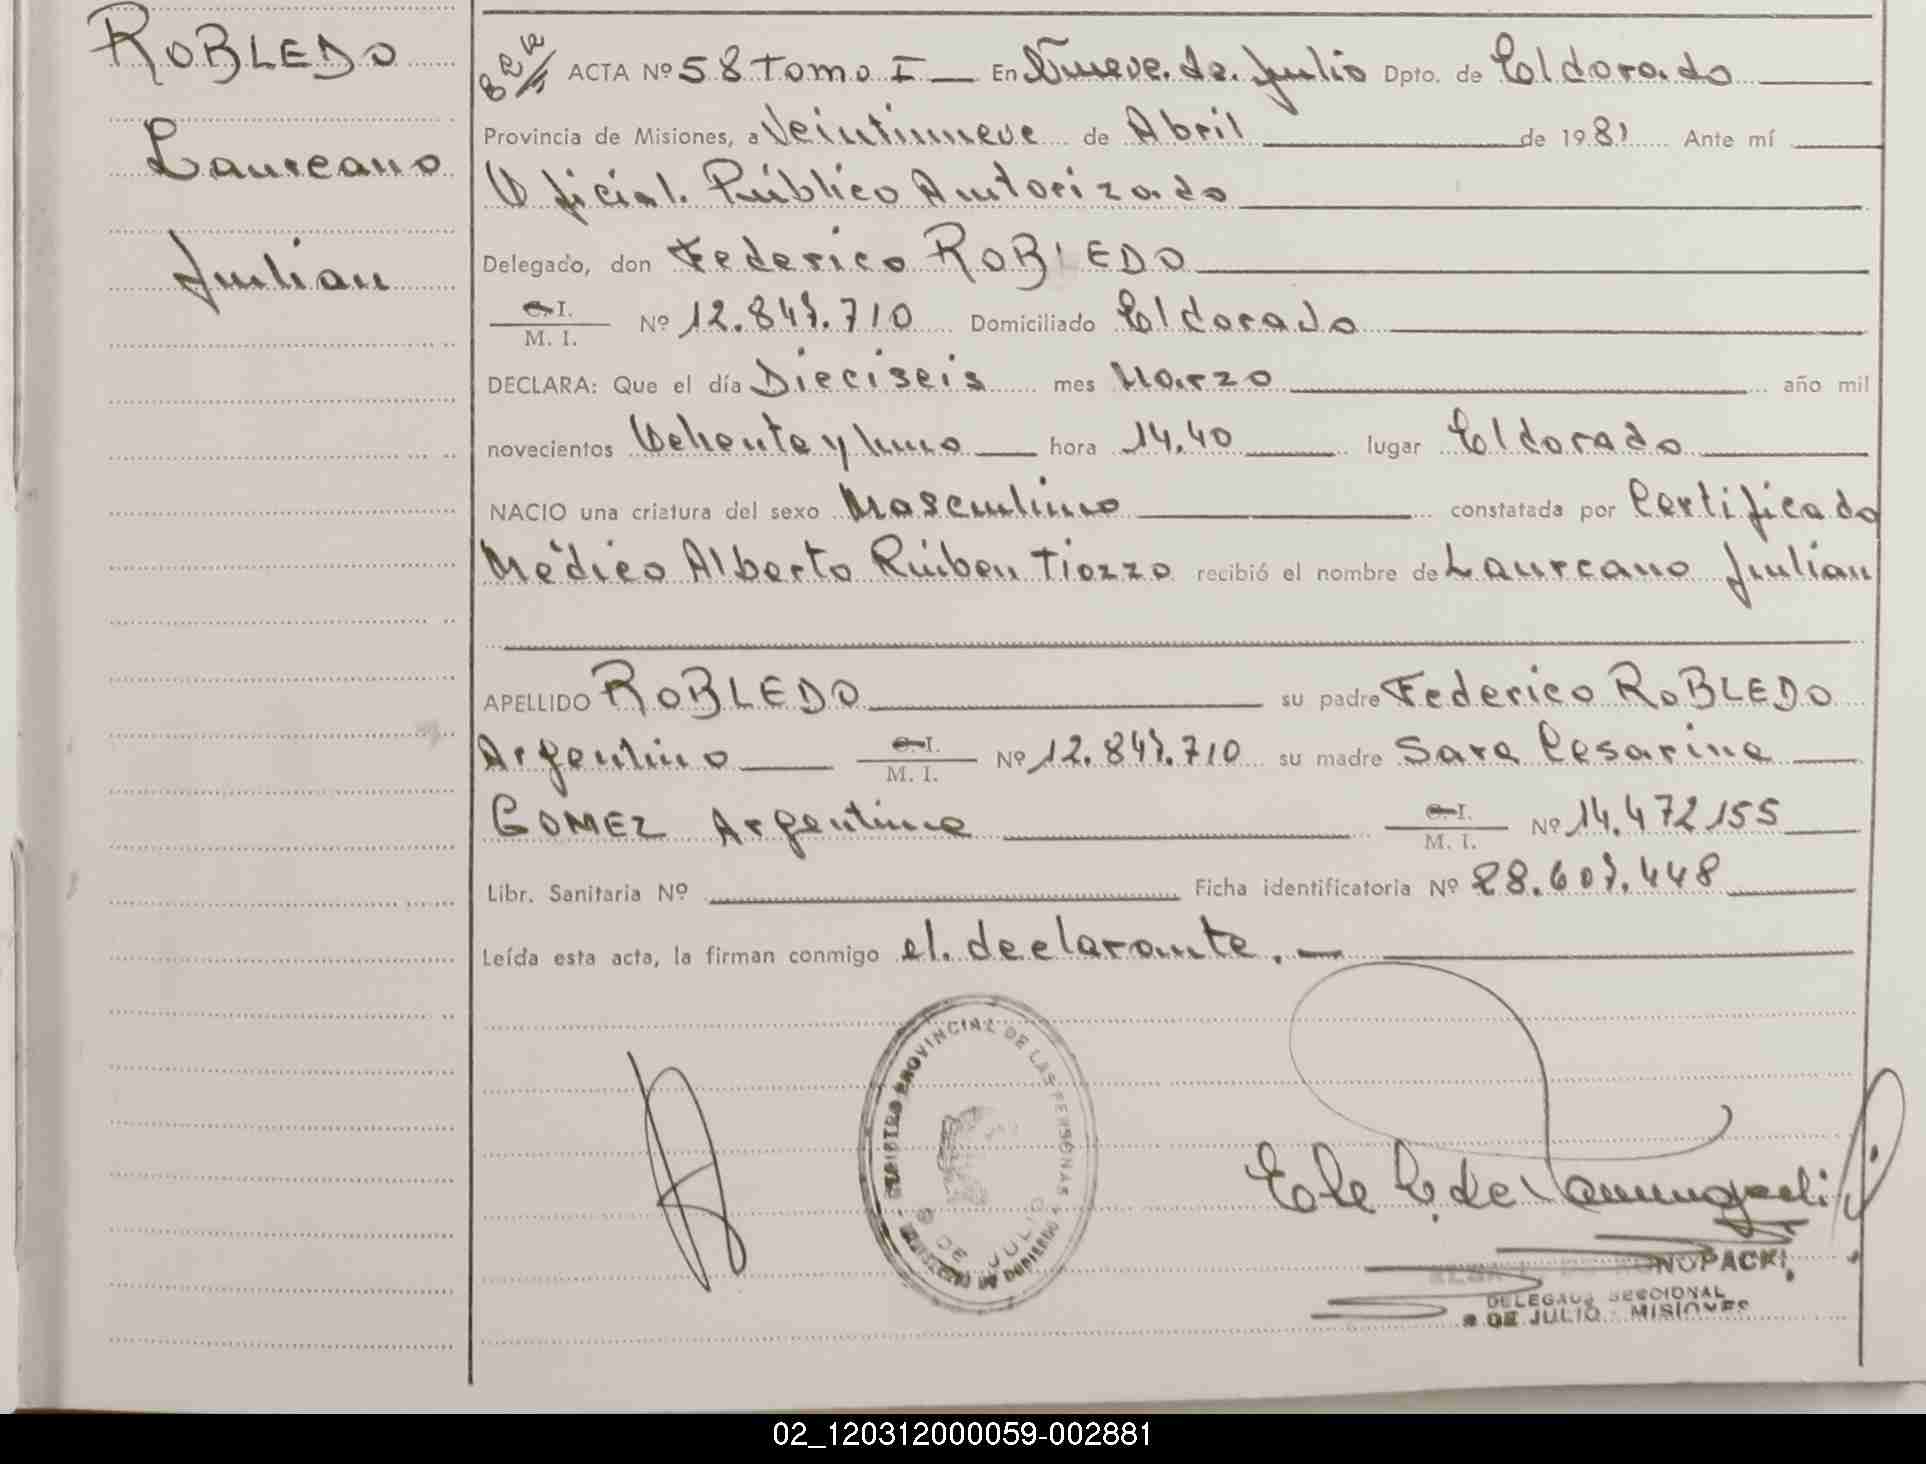 ROBLEDO
Laureano
Julian
ACTA Nº 58 Tomo I En Nueve de Julio Dpto. de Eldorado
Provincia de Misiones, a Veintinueve de Abril de 1981 Ante mí
Oficial Público Autorizado
Delegado, don Federico ROBLEDO
C.I.
M. I. Nº 12.847.710 Domiciliado Eldorado
DECLARA: Que el día Dieciseis mes Marzo año mil
novecientos Ochenta y Uno hora 14.40 lugar Eldorado
NACIO una criatura del sexo Masculino constatada por Certificado
Médico Alberto Rúben Tiozzo recibió el nombre de Laureano Julian
APELLIDO ROBLEDO su padre Federico ROBLEDO
Argentino C.I. M. I. Nº 12.847.710 su madre Sara Cesarina
GOMEZ Argentina C.I. M. I. Nº 14.472.155
Libr. Sanitaria Nº Ficha identificatoria Nº 28.607.448
Leída esta acta, la firman conmigo el declarante.-
REGISTRO PROVINCIAL DE LAS PERSONAS
MINISTERIO DE GOBIERNO
9 DE JULIO
KONOPACKI
DELEGADA SECCIONAL
9 DE JULIO - MISIONES
02_120312000059-002881